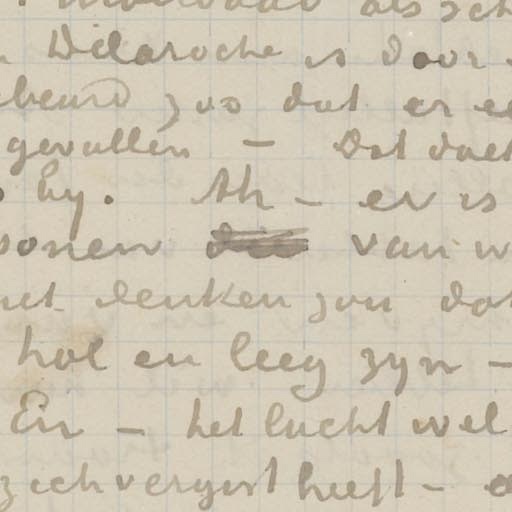 als sch
Delaroche is door
beurd zoo dat er ee
gevallen – Dat doet
hy. Ah – er is
sonen die van w
denken zou dat
hol en leeg zyn –
En – het lucht wel
zich vergist heeft –